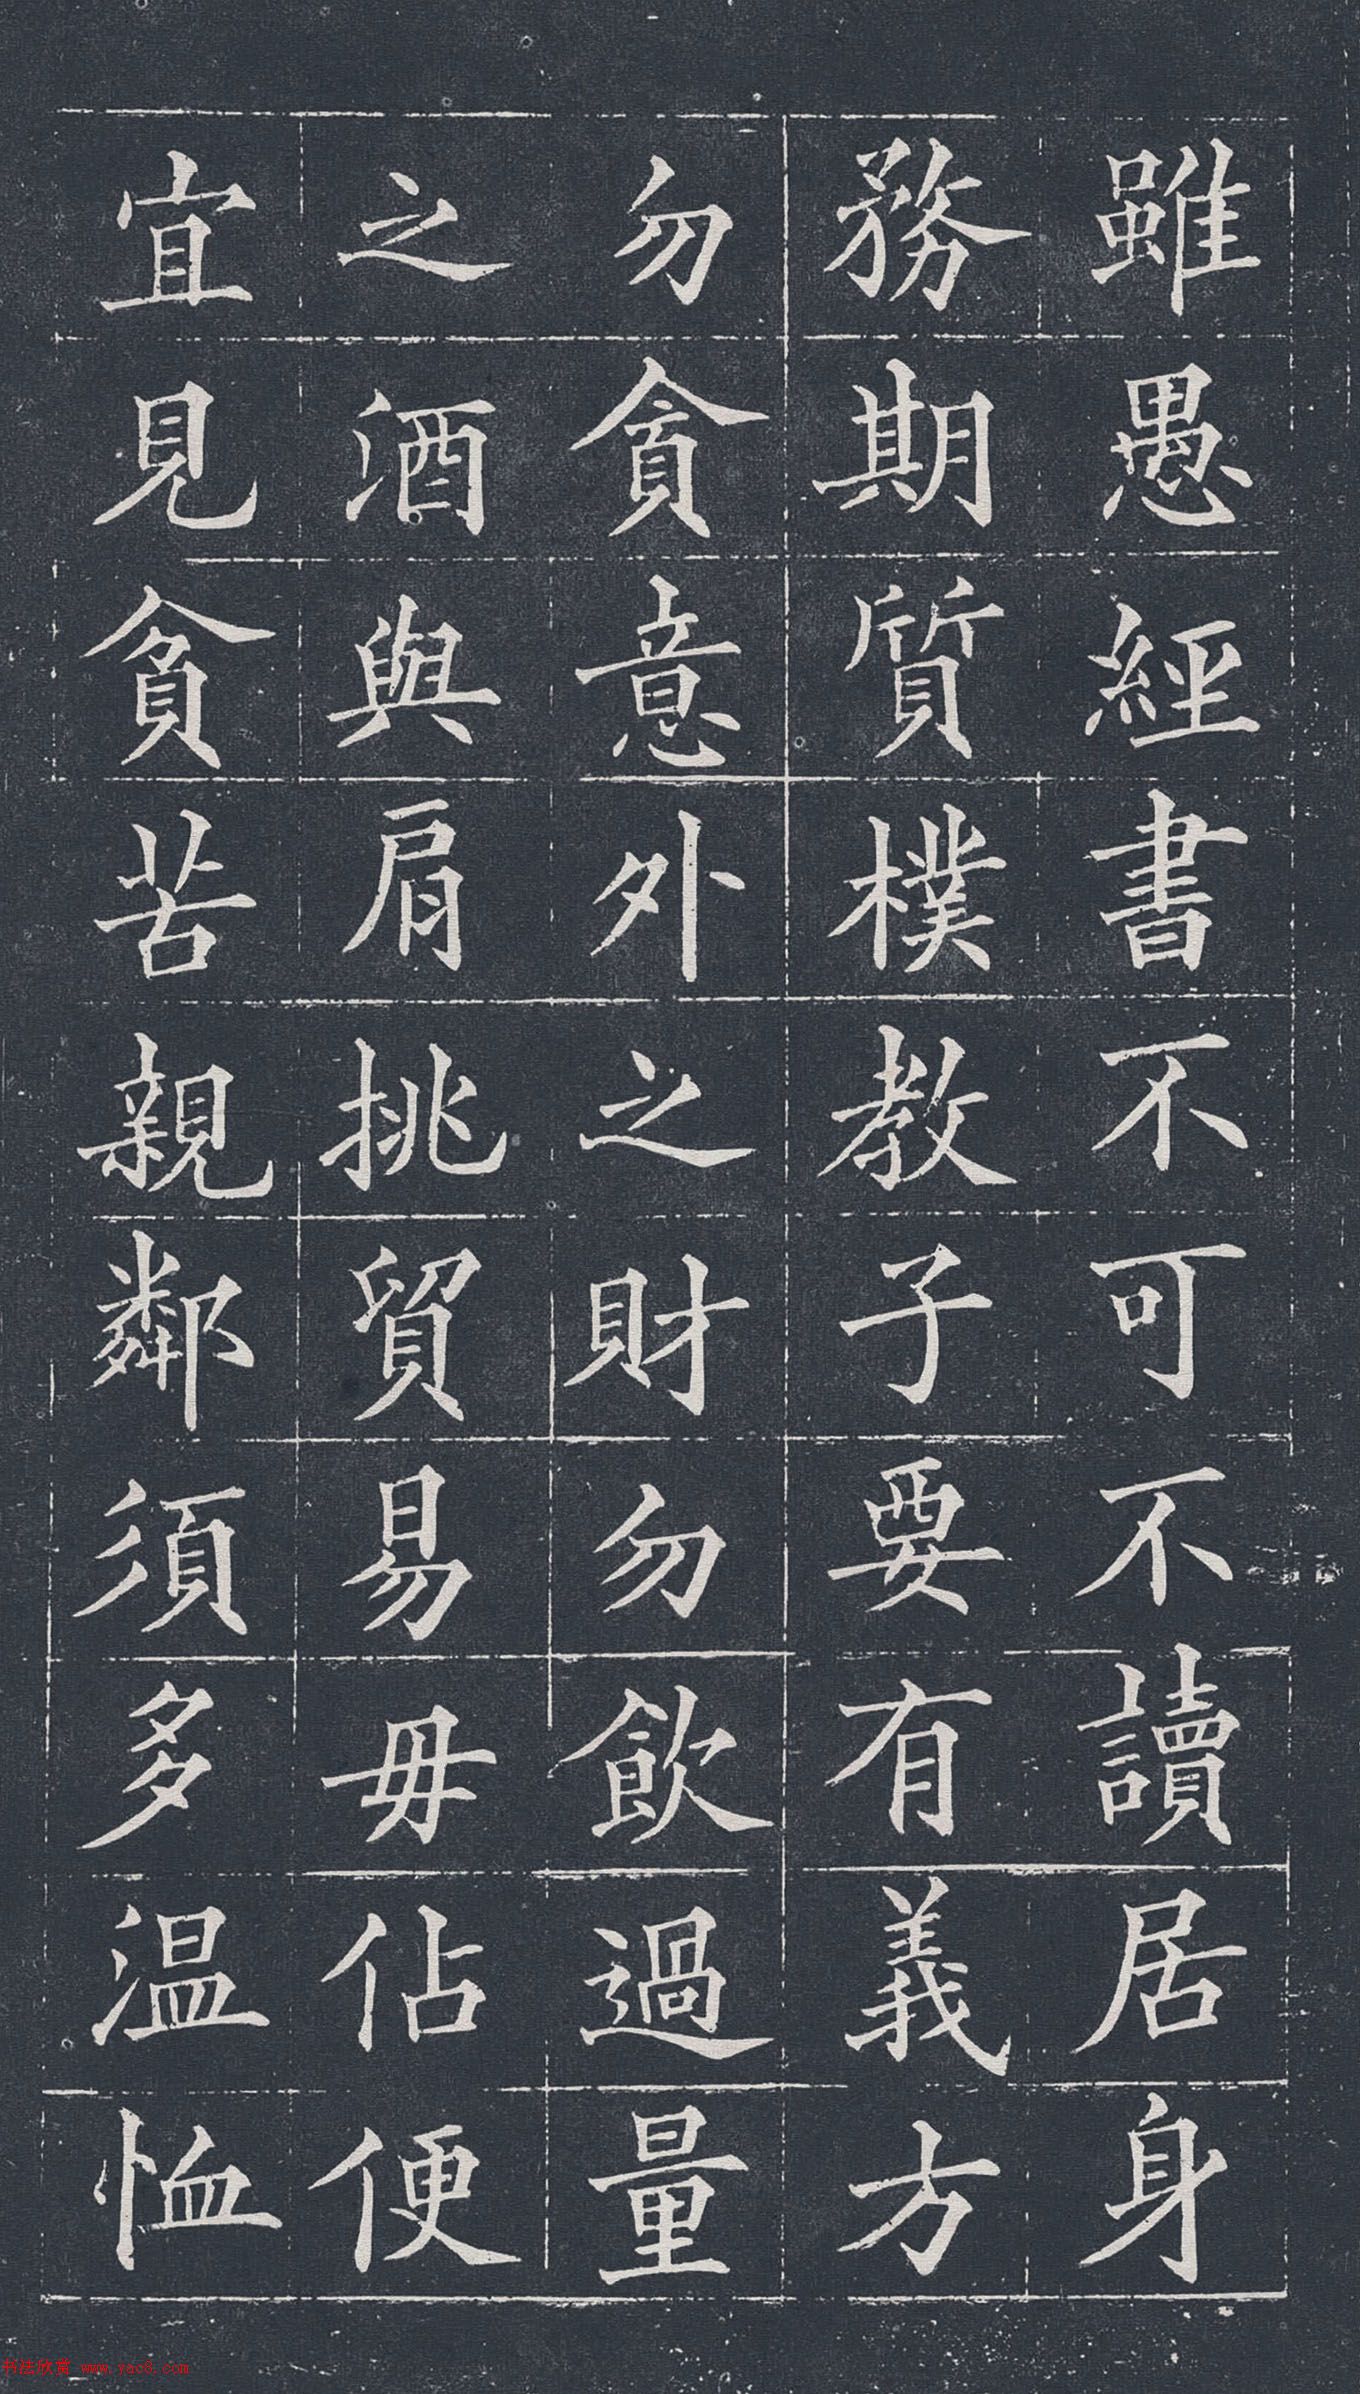 雖愚經書不可不讀居身
務期質樸教子要有義方
勿貪意外之財勿飲過量
之酒與肩挑貿易毋佔便
宜見貧苦親鄰須多温恤
书法欣赏 www.yac8.com